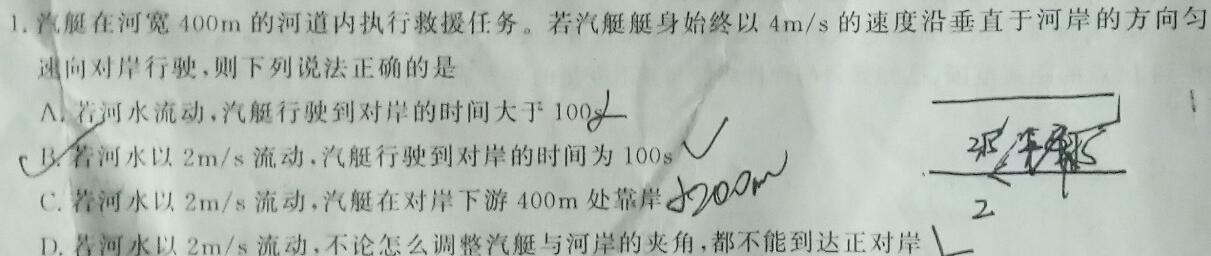 1. 汽艇在河宽 400m 的河道内执行救援任务。若汽艇艇身始终以 4m/s 的速度沿垂直于河岸的方向匀
速向对岸行驶,则下列说法正确的是
A. 若河水流动,汽艇行驶到对岸的时间大于 100s
B. 若河水以 2m/s 流动,汽艇行驶到对岸的时间为 100s
C. 若河水以 2m/s 流动,汽艇在对岸下游 400m 处靠岸 200m
D. 若河水以 2m/s 流动,不论怎么调整汽艇与河岸的夹角,都不能到达正对岸
2